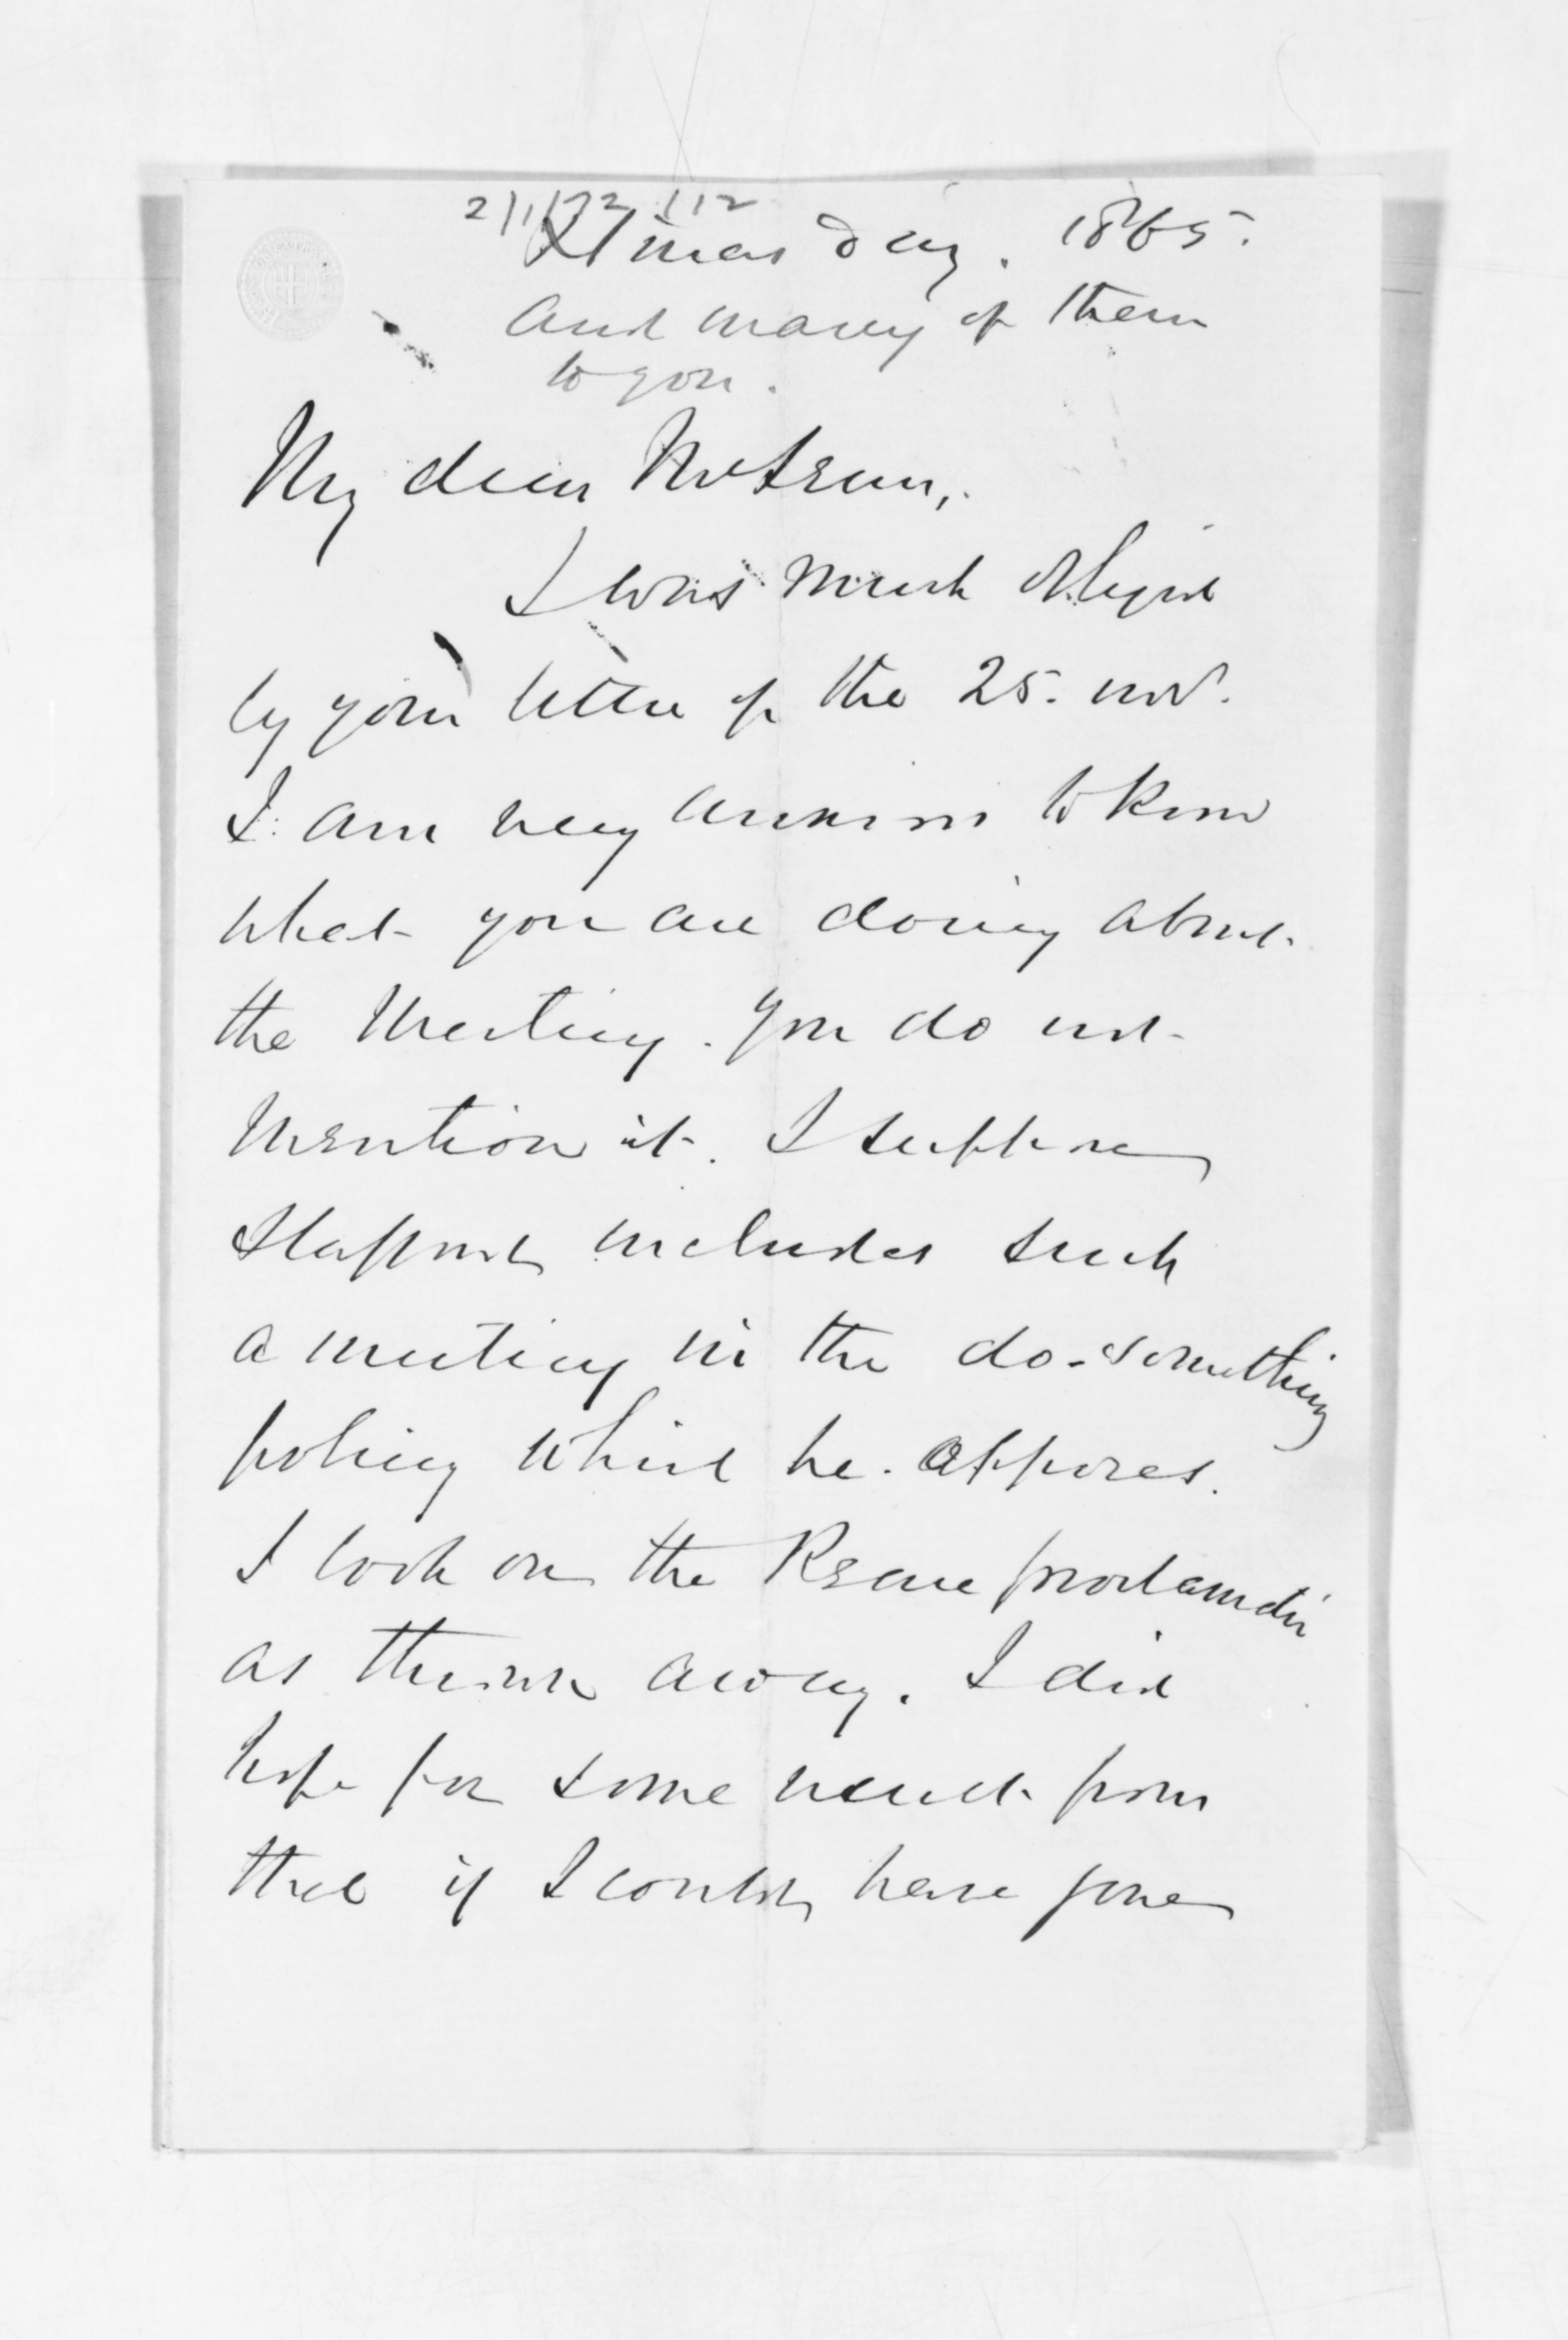 Xmas day. 1865.
and many of them
to you.
My dear McLean,
I was much obliged
by your letter of the 25. nov.
I am very anxious to know
what you are doing about
the Meeting. You do not
mention it. I suppose
Stafford includes such
a meeting in the do-something
policy which he opposes.
I look on the Peace proclamation
as thrown away. I did
hope for some result from
that if I could have gone